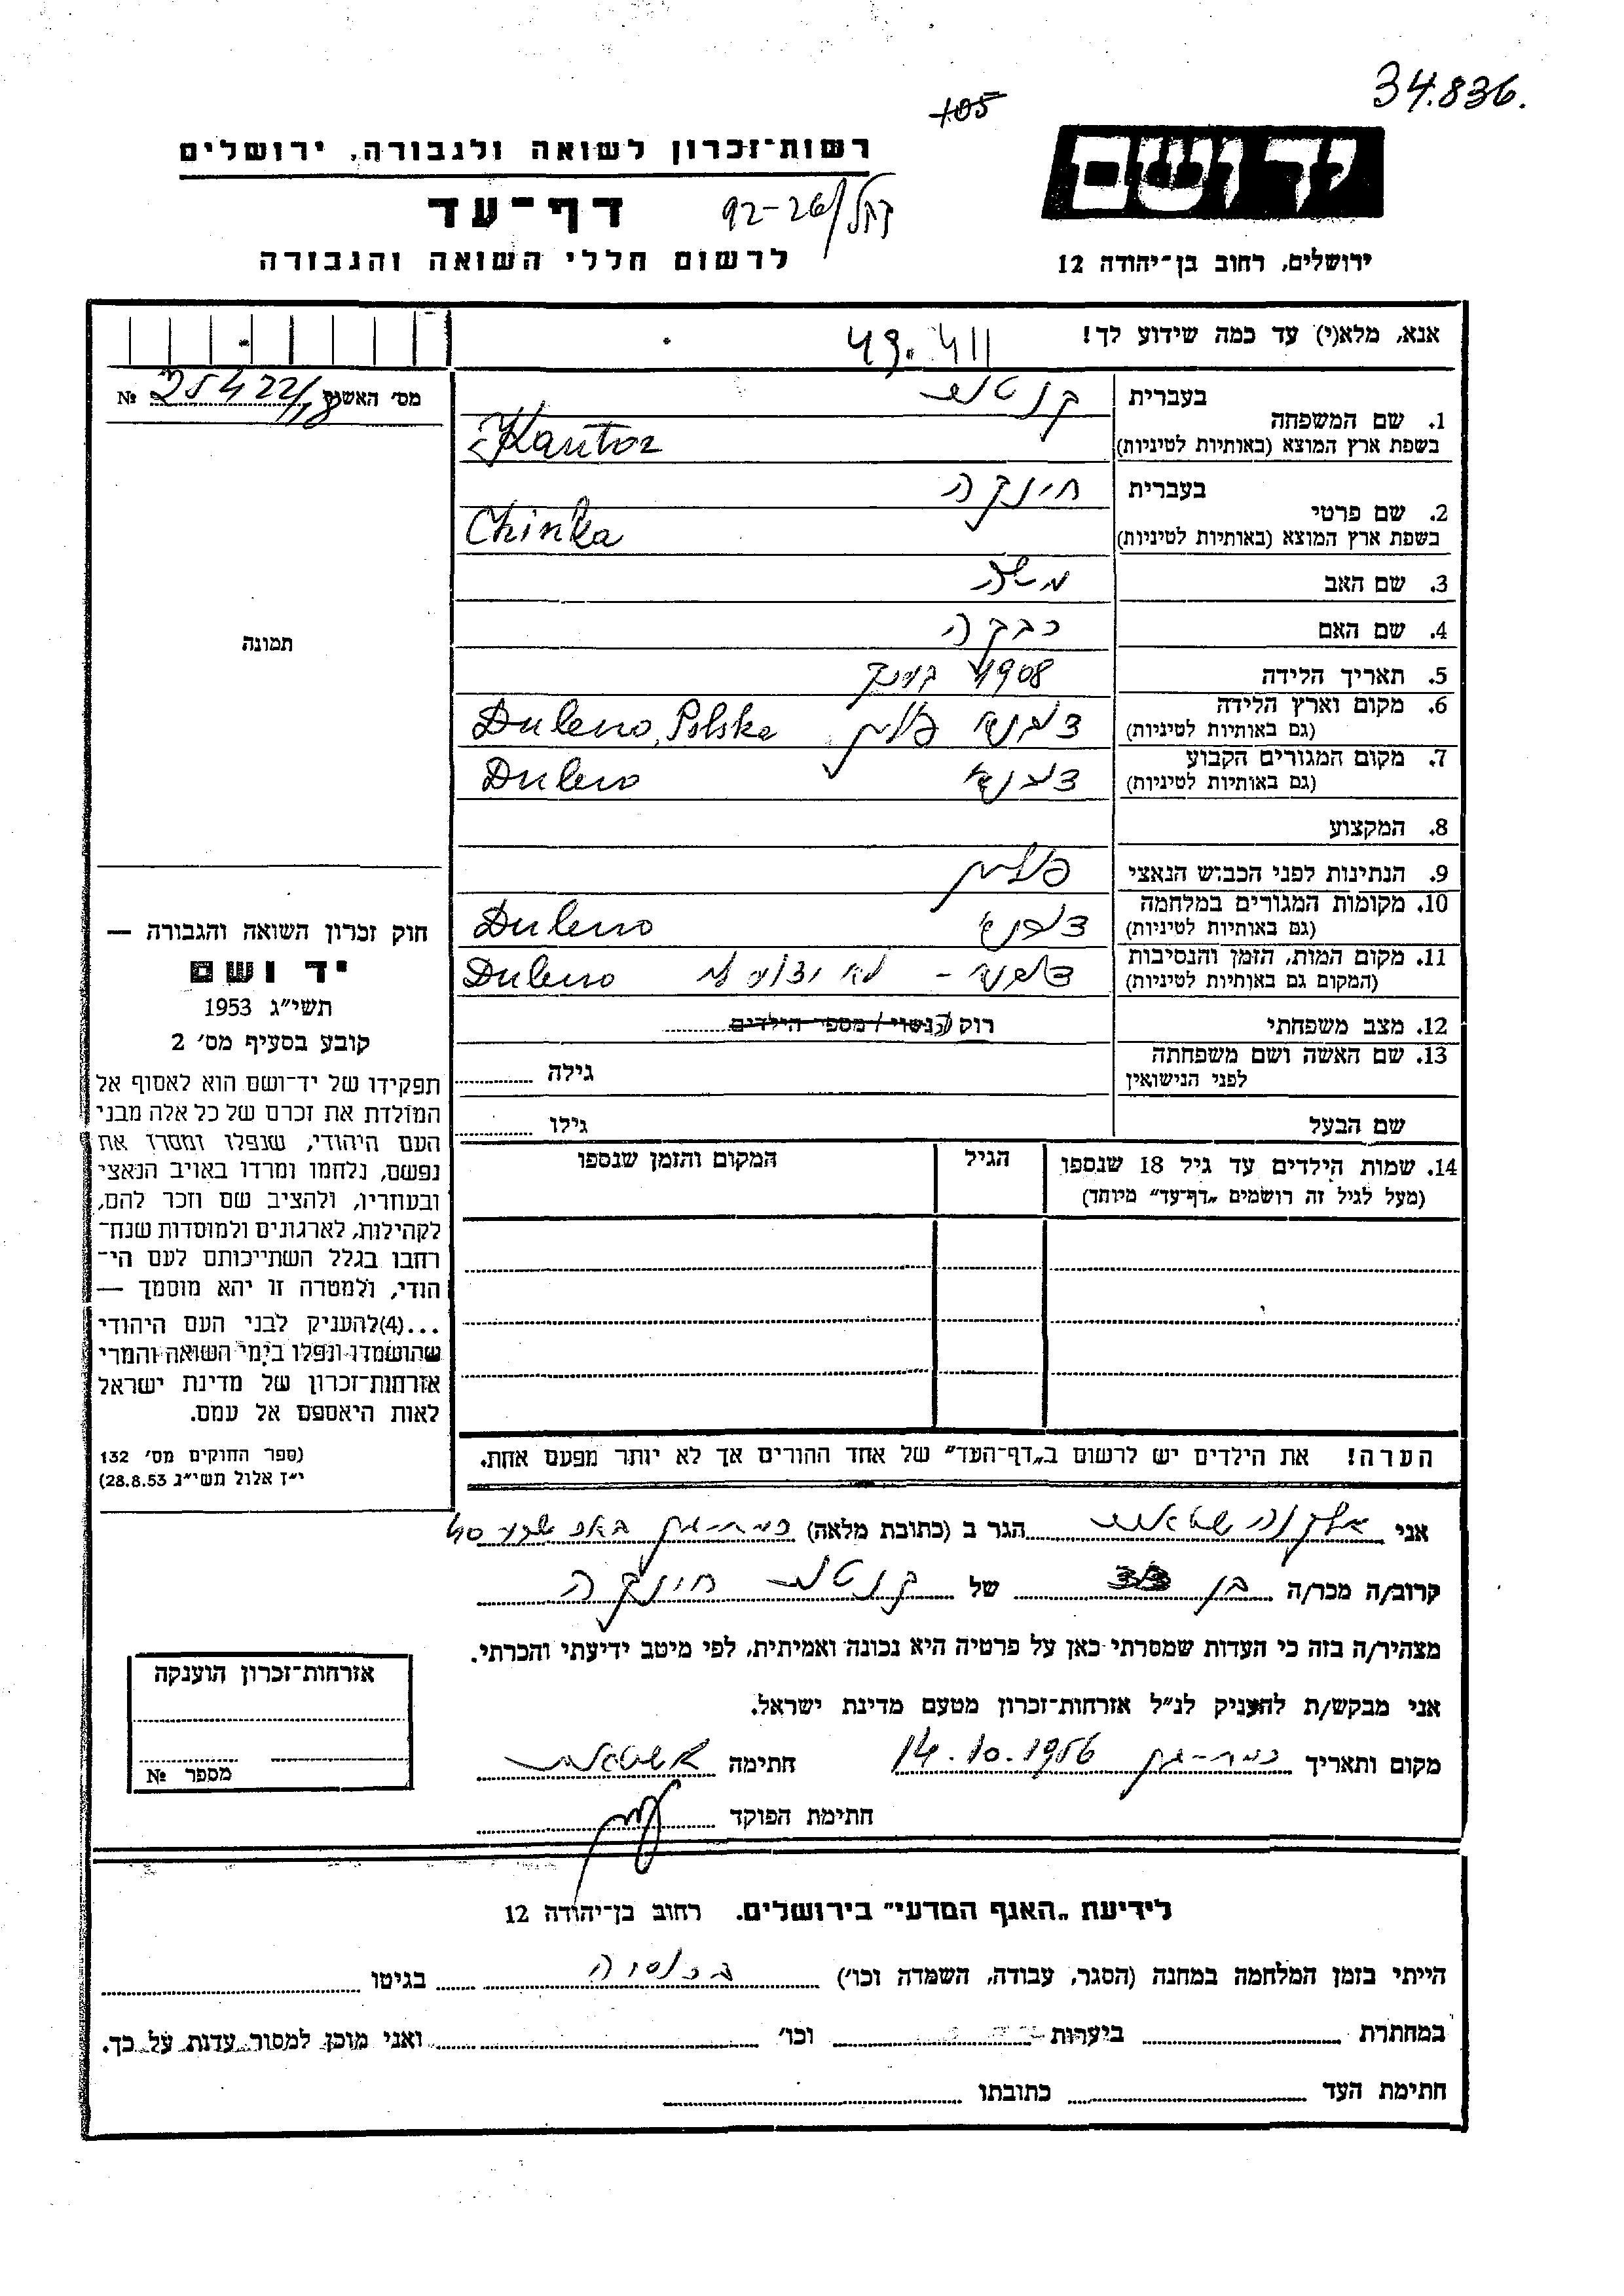 34.836.
105
ידושם
רשות־זכרון לשואה ולגבורה, ירושלים
דף־עד
92-26/
ירושלים, רחוב בן־יהודה 12
לרשום חללי השואה והגבורה
אנא, מלא(י) עד כמה שידוע לך!
49.411
מס' האשה № 25422/18
1. שם המשפחה
בעברית קנטור
בשפת ארץ המוצא (באותיות לטיניות) Kantor
2. שם פרטי
בעברית חינקה
בשפת ארץ המוצא (באותיות לטיניות) Chinka
3. שם האב משה
4. שם האם רבקה
תמונה
5. תאריך הלידה 1908
6. מקום וארץ הלידה
(גם באותיות לטיניות) דובנו פולין Dubno, Polska
7. מקום המגורים הקבוע
(גם באותיות לטיניות) דובנו Dubno
8. המקצוע
9. הנתינות לפני הכבוש הנאצי פולין
10. מקומות המגורים במלחמה
(גם באותיות לטיניות) דובנו Dubno
11. מקום המות, הזמן והנסיבות
(המקום גם באותיות לטיניות) דובנו – לא ידוע לי Dubno
12. מצב משפחתי רוק/ה נשוי/ מספר הילדים
13. שם האשה ושם משפחתה
לפני הנישואין
גילה
שם הבעל
גילו
14. שמות הילדים עד גיל 18 שנספו
(מעל לגיל זה רושמים „דף־עד" מיוחד)
הגיל
המקום והזמן שנספו
הערה! את הילדים יש לרשום ב„דף־העד" של אחד ההורים אך לא יותר מפעם אחת.
חוק זכרון השואה והגבורה —
יד ושם
תשי״ג 1953
קובע בסעיף מס' 2
תפקידו של יד־ושם הוא לאסוף אל
המולדת את זכרם של כל אלה מבני
העם היהודי, שנפלו ומסרו את
נפשם, נלחמו ומרדו באויב הנאצי
ובעוזריו, ולהציב שם וזכר להם,
לקהילות, לארגונים ולמוסדות שנח־
רחבו בגלל השתייכותם לעם הי־
הודי, ולמטרה זו יהא מוסמך —
...(4)להעניק לבני העם היהודי
שהושמדו ונפלו בימי השואה והמרי
אזרחות־זכרון של מדינת ישראל
לאות היאספם אל עמם.
(ספר החוקים מס' 132
י״ז אלול תשי״ג 28.8.53)
אני הגר ב (כתובת מלאה) רמת-גן 40
קרוב/ה מכר/ה בן של קנטור חינקה
מצהיר/ה בזה כי העדות שמסרתי כאן על פרטיה היא נכונה ואמיתית, לפי מיטב ידיעתי והכרתי.
אני מבקש/ת להעניק לנ״ל אזרחות־זכרון מטעם מדינת ישראל.
מקום ותאריך רמת-גן 14.10.1956 חתימה
חתימת הפוקד
אזרחות־זכרון הוענקה
מספר №
לידיעת „האגף המדעי" בירושלים. רחוב בן־יהודה 12
הייתי בזמן המלחמה במחנה (הסגר, עבודה, השמדה וכו') ברוסיה בגיטו
במחתרת ביערות וכו' ואני מוכן למסור עדות על כך.
חתימת העד כתובתו